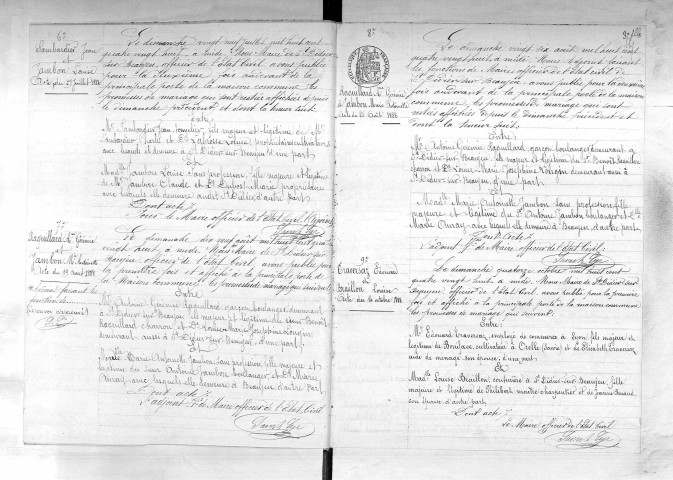 6e
Sambardier Jean
et
Jambon Louise
Acte du 29 juillet 1888
Le dimanche vingt neuf juillet mil huit cent
quatre vingt huit à midi Nous Maire de St Didier
sur Beaujeu, officier de l'Etat Civil avons publié
pour la deuxième fois au devant de la
principale porte de la maison commune les
promesses de mariage qui sont restées affichées depuis
le dimanche précédent et dont la teneur suit.
Entre
Mr Sambardier Jean, fils majeur et légitime de Mr
Sambardier et De Lafosse Louise, propriétaires cultivateurs
avec lesquels il demeure à St Didier sur Beaujeu d'une part
Et
Melle Jambon Louise sans profession, fille majeure et légitime
de Mr Jambon Claude et De Dubost Marie propriétaires
avec lesquels elle demeure audit St Didier d'autre part.
Dont acte
Le Maire officier de l'Etat Civil
7e
Raquillard Ane Gérémie
et
Jambon Mie Antoinette
Acte du 19 août 1888
Le dimanche dix neuf août mil huit cent quatre
vingt huit à midi Maire de St Didier sur
Beaujeu officier de l'Etat Civil avons publié pour
la première fois et affiché à la principale porte de
la Maison commune les promesses de mariage qui suivent
Entre
Mr Antoine Gérémie Raquillard garçon boulanger demeurant
à St Didier sur Beaujeu fils majeur et légitime de Benoit
Raquillard charron et De Louise Marie Joséphine
demeurant aussi à St Didier sur Beaujeu, d'une part.
Et
Melle Marie Antoinette Jambon sans profession, fille majeure et
légitime de Antoine Jambon boulanger et De Marie
avec lesquels elle demeure à Beaujeu d'autre part
Dont acte
L'adjoint ff. de Maire officier de l'Etat Civil
8e
Raquillard Ane Gérémie
et Jambon Marie Antoinette
Acte du 26 Août 1888
Le dimanche vingt six août mil huit cent
quatre vingt huit à midi. Nous adjoint faisant
les fonctions de Maire officier de l'Etat civil de
St Didier sur Beaujeu avons publié pour la deuxième
fois au devant de la principale porte de la maison
commune, les promesses de mariage qui sont
restées affichées depuis le dimanche précédent et
dont la teneur suit.
Entre:
Mr Antoine Gérémie Raquillard, garçon boulanger demeurant à
St Didier sur Beaujeu, fils majeur et légitime de Benoît Raquillard
charron et De Louise Marie Joséphine demeurant aussi à
St Didier sur Beaujeu, d'une part.
Et
Melle Marie Antoinette Jambon sans profession, fille
majeure et légitime de Antoine Jambon boulanger et De
Marie avec lesquels elle demeure à Beaujeu, d'autre part.
Dont acte
L'adjoint ff. de Maire officier de l'Etat Civil.
9e
Traversaz Edouard
et
Braillon Louise
Acte du 14 octobre 1888
Le dimanche quatorze octobre mil huit cent
quatre vingt huit, à midi. Nous Maire de St Didier sur
Beaujeu officier de l'Etat Civil, avons publié pour la première
fois et affiché à la principale porte de la maison commune
les promesses de mariage qui suivent.
Entre:
Mr Edouard Traversaz, employé de commerce à Lyon, fils majeur et
légitime de Boniface, cultivateur à Orelle (Savoie) et de Elisabeth Traversaz
aide de ménage son épouse, d'une part.
&
Melle Louise Braillon, couturière à St Didier-sur-Beaujeu, fille
majeure et légitime de Philibert maître charpentier et de Jeanne
son épouse d'autre part
Dont acte
Le Maire officier de l'Etat Civil